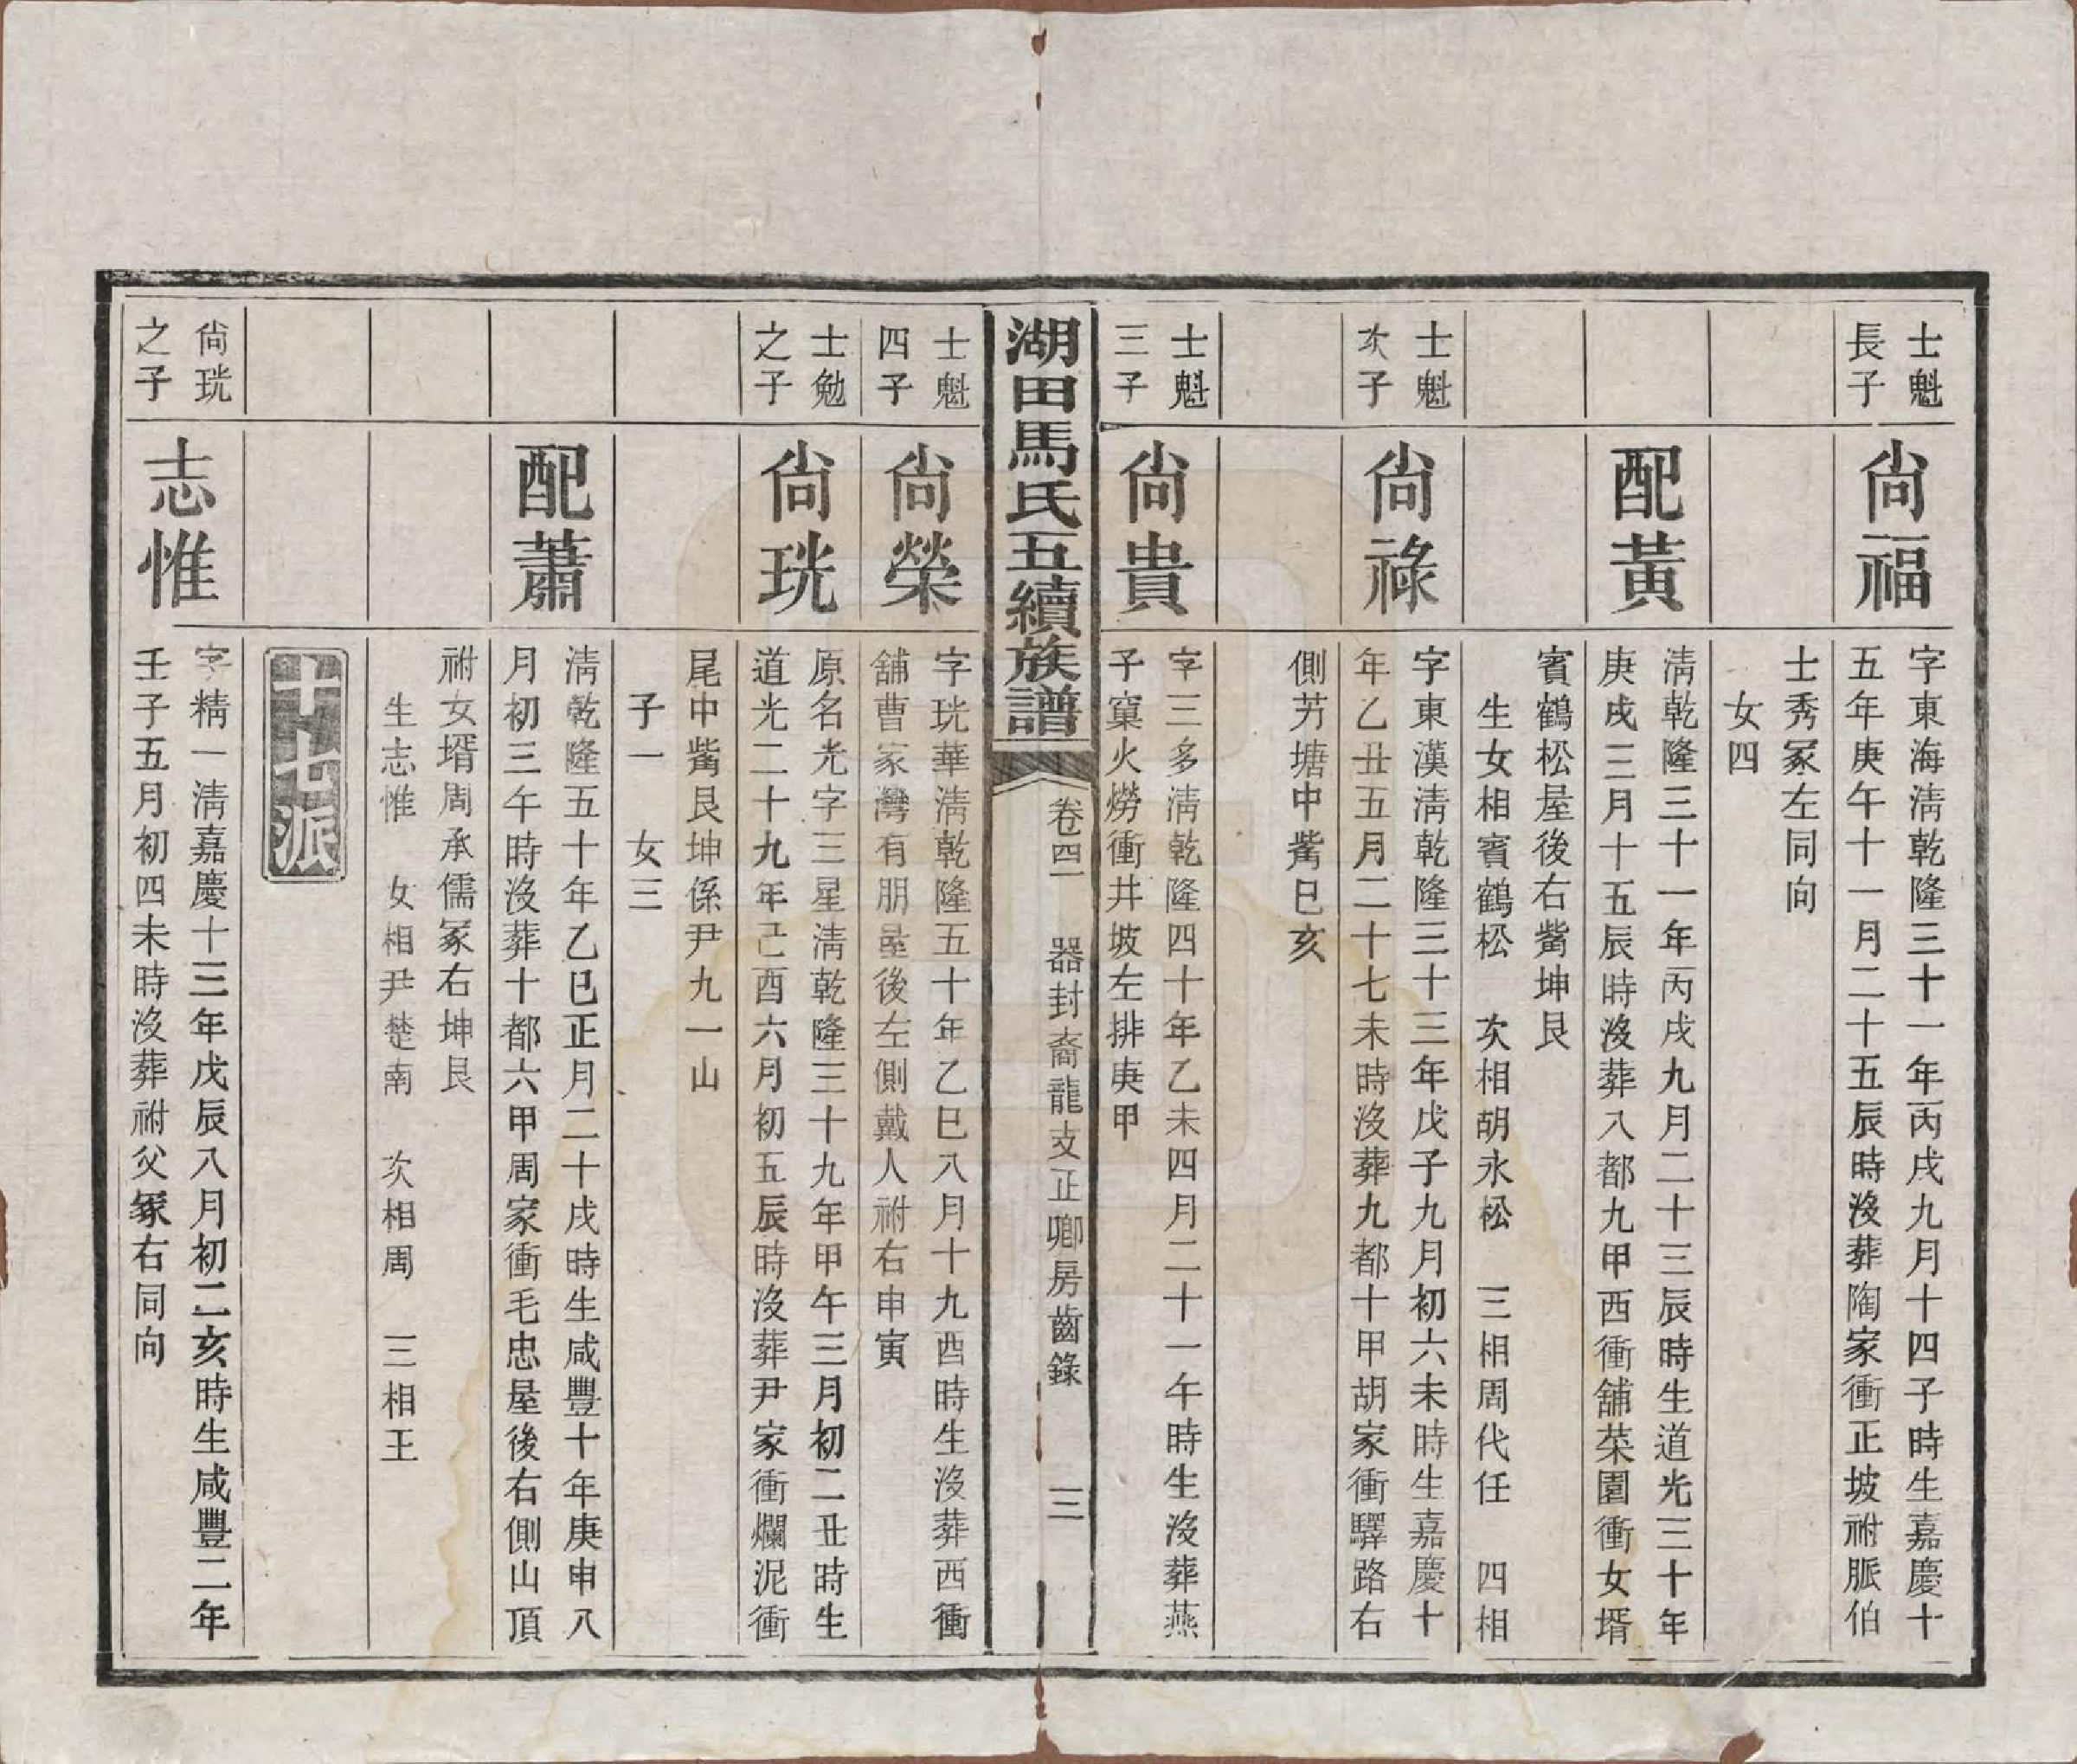 士魁
長子
尙福
字東海淸乾隆三十一年丙戌九月十四子時生嘉慶十
五年庚午十一月二十五辰時沒葬陶家衝正坡祔脈伯
士秀冢左同向
女四
配黃
淸乾隆三十一年丙戌九月二十三辰時生道光三十年
庚戌三月十五辰時沒葬八都九甲西衝舖菜園衝女壻
賓鶴松屋後右觜坤艮
生女相賓鶴松　次相胡永松　三相周代任　四相
士魁
次子
尙祿
字東漢淸乾隆三十三年戊子九月初六未時生嘉慶十
年乙丑五月二十七未時沒葬九都十甲胡家衝驛路右
側芳塘中觜巳亥
士魁
三子
尙貴
字三多淸乾隆四十年乙未四月二十一午時生沒葬燕
子窠火燐衝井坡左排庚甲
湖田馬氏五續族譜
卷四　器封裔龍支正卿房齒錄　三
士魁
四子
尙榮
字珖華淸乾隆五十年乙巳八月十九酉時生沒葬西衝
舖曹家灣有朋屋後左側戴人祔右申寅
士勉
之子
尙珖
原名光字三星淸乾隆三十九年甲午三月初二丑時生
道光二十九年己酉六月初五辰時沒葬尹家衝爛泥衝
尾中觜艮坤係尹九一山
子一　女三
配蕭
淸乾隆五十年乙巳正月二十戌時生咸豐十年庚申八
月初三午時沒葬十都六甲周家衝毛忠屋後右側山頂
祔女壻周承儒冢右坤艮
生志惟　女相尹楚南　次相周　三相王
十七派
尙珖
之子
志惟
字精一淸嘉慶十三年戊辰八月初二亥時生咸豐二年
壬子五月初四未時沒葬祔父冢右同向